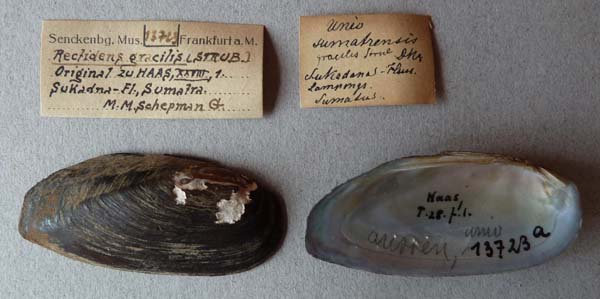 Senckenbg. Mus. 13723 Frankfurt a. M.
Rectidens gracilis (STRUB.)
Original zu HAAS, XXVIII, 1.
Sukadna-Fl., Sumatra.
M. M. Schepman G.
Unio
sumatrensis
gracilis Dkr
Sukadana-Fluss.
Lampongs.
Sumatra.
Haas,
T. 28. f. 1.
unio
13723 a